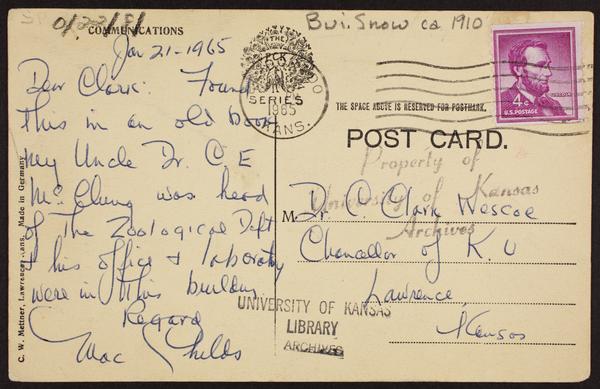 0/22/81
COMMUNICATIONS
Bui. Snow ca 1910
Jan 21-1965
Dear Clark: Found
this in an old book
My Uncle Dr. C. E
McClung was head
of The Zoological Dept
& his office & laboratory
were in this building
Regard
Mac Childs
THE
SERIES
1965
KANS.
4¢
LINCOLN
U.S. POSTAGE
THE SPACE ABOVE IS RESERVED FOR POSTMARK.
POST CARD.
Property of
University of Kansas
Archives
M
Dr. C Clark Wescoe
Chancellor of K. U
Lawrence,
Kansas
UNIVERSITY OF KANSAS
LIBRARY
ARCHIVES
C. W. Mettner, Lawrence, Kans. Made in Germany